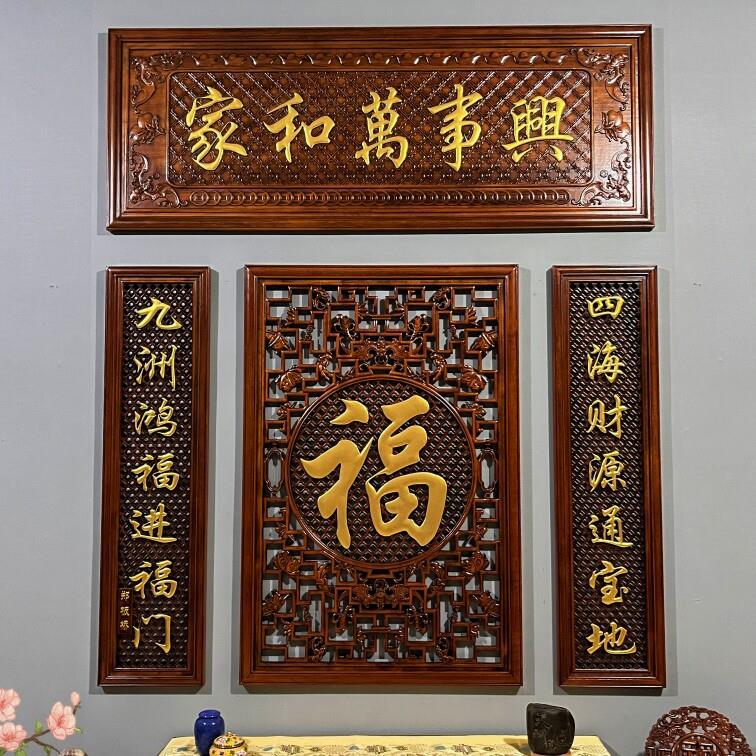 家和萬事興
四海财源通宝地
福
九洲鸿福进福门
郑板桥